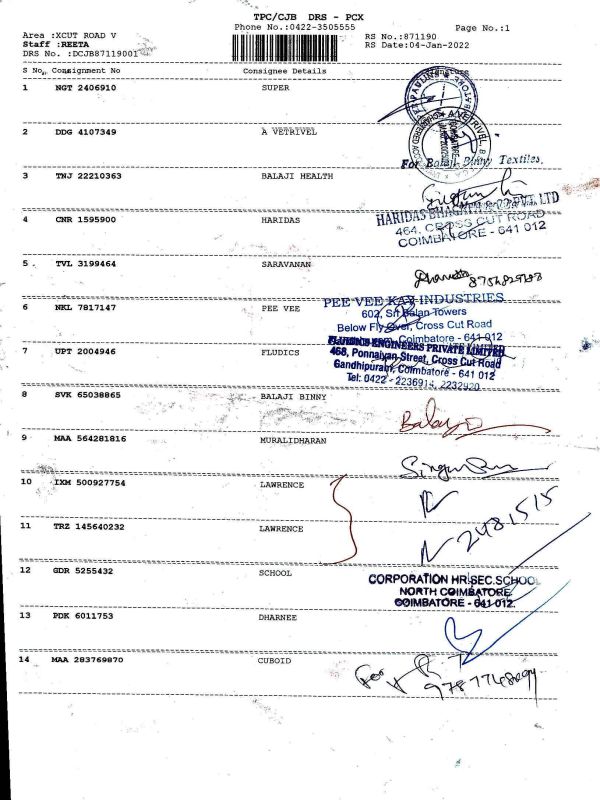 TPC/CJB DRS - PCX
Phone No.:0422-3505555
Page No.:1
Area :XCUT ROAD V
RS No.:871190
Staff :REETA
RS Date:04-Jan-2022
DRS No. :DCJB87119001
S No. Consignment No Consignee Details Signature
1 NGT 2406910 SUPER
2 DDG 4107349 A VETRIVEL
For Balaji Binny Textiles.
3 TNJ 22210363 BALAJI HEALTH
HARIDAS BHAGATH & CO PVT. LTD
4 CNR 1595900 HARIDAS
464, CROSS CUT ROAD
COIMBATORE - 641 012
5 . TVL 3199464 SARAVANAN
PEE VEE KAY INDUSTRIES
6 NKL 7817147 PEE VEE
602, Sri Balan Towers
Below Fly Over, Cross Cut Road
Coimbatore - 641 012
FLUIDICS ENGINEERS PRIVATE LIMITED
7 UPT 2004946 FLUDICS
468, Ponnaiyan Street, Cross Cut Road
Gandhipuram, Coimbatore - 641 012
Tel: 0422 - 2236914, 2232920
8 SVK 65038865 BALAJI BINNY
Balaji
9 MAA 564281816 MURALIDHARAN
10 IXM 500927754 LAWRENCE
11 TRZ 145640232 LAWRENCE
2481515
12 GDR 5255432 SCHOOL
CORPORATION HR.SEC.SCHOOL
NORTH COIMBATORE
COIMBATORE - 641 012.
13 PDK 6011753 DHARNEE
14 MAA 283769870 CUBOID
For